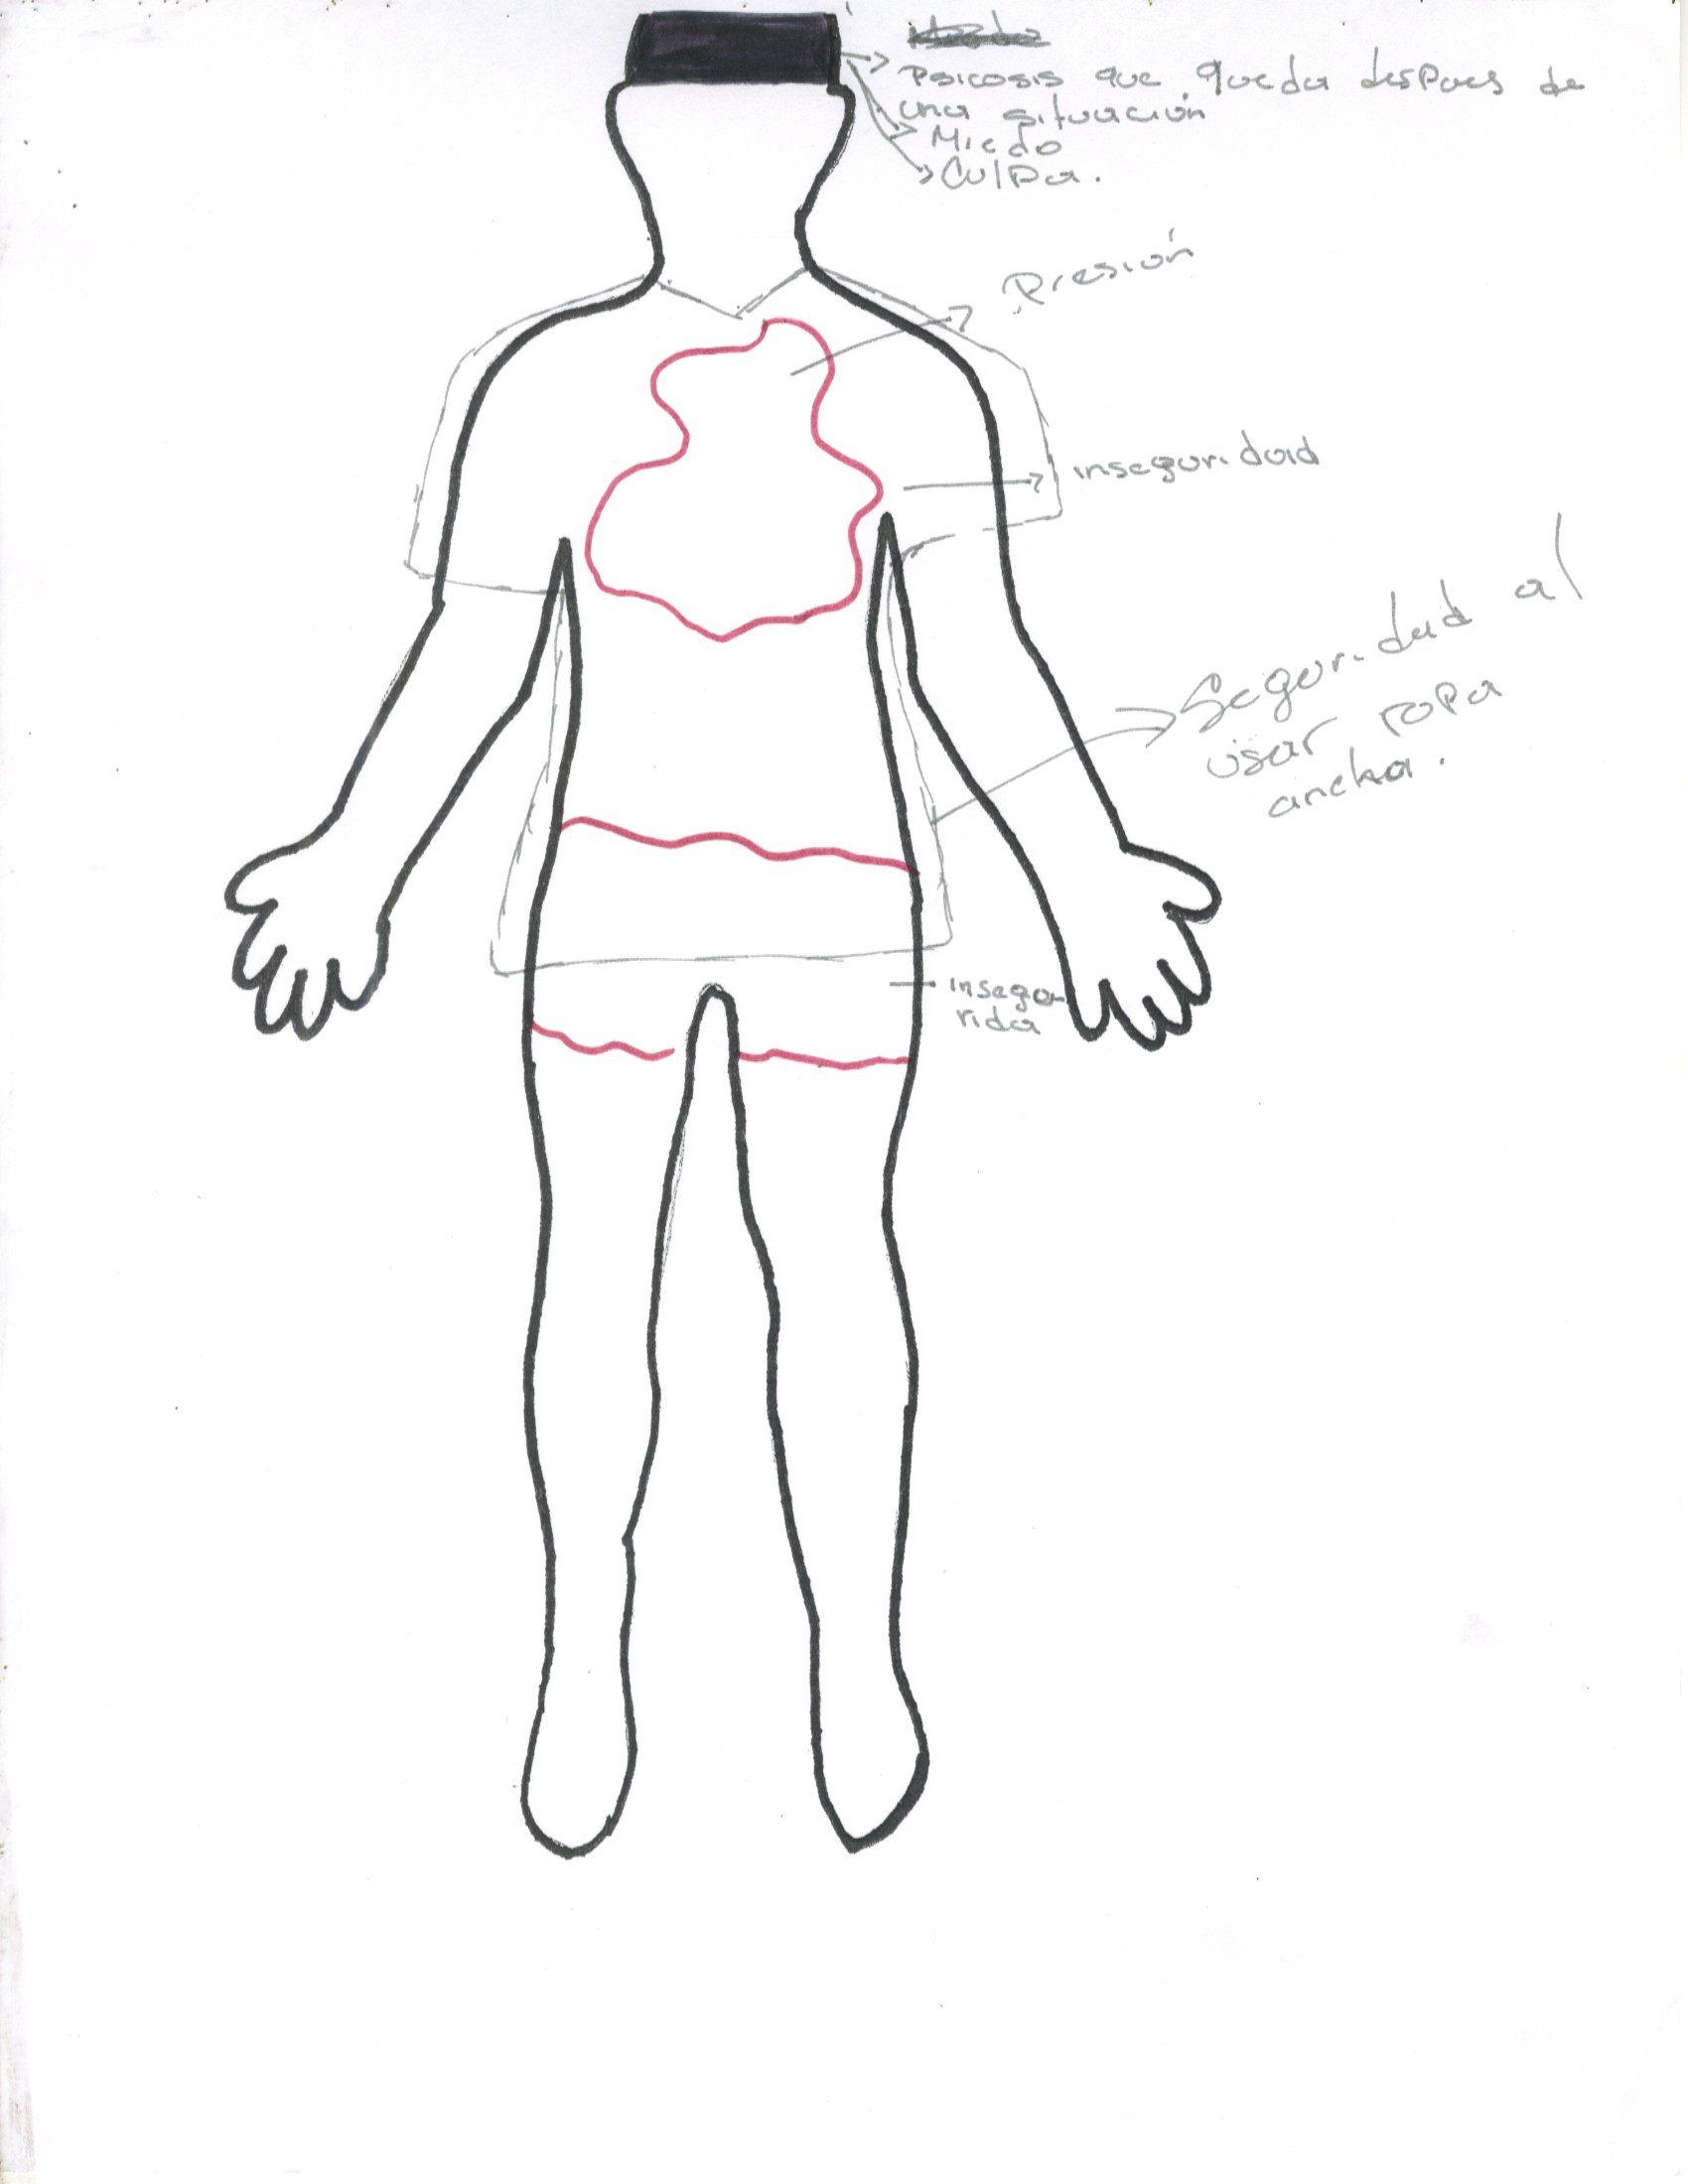 Psicosis que queda despues de
una situación
Miedo
Culpa.
Presión
inseguridad
Seguridad al
usar ropa
ancha.
insegu-
rida